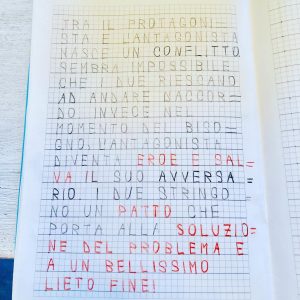 TRA IL PROTAGONI=
STA E L'ANTAGONISTA
NASCE UN CONFLITTO
SEMBRA IMPOSSIBILE
CHE I DUE RIESCANO
AD ANDARE D'ACCOR=
DO INVECE NEL
MOMENTO DEL BISO=
GNO, L'ANTAGONISTA
DIVENTA EROE E SAL=
VA IL SUO AVVERSA=
RIO. I DUE STRINGO=
NO UN PATTO CHE
PORTA ALLA SOLUZIO=
NE DEL PROBLEMA E
A UN BELLISSIMO
LIETO FINE!